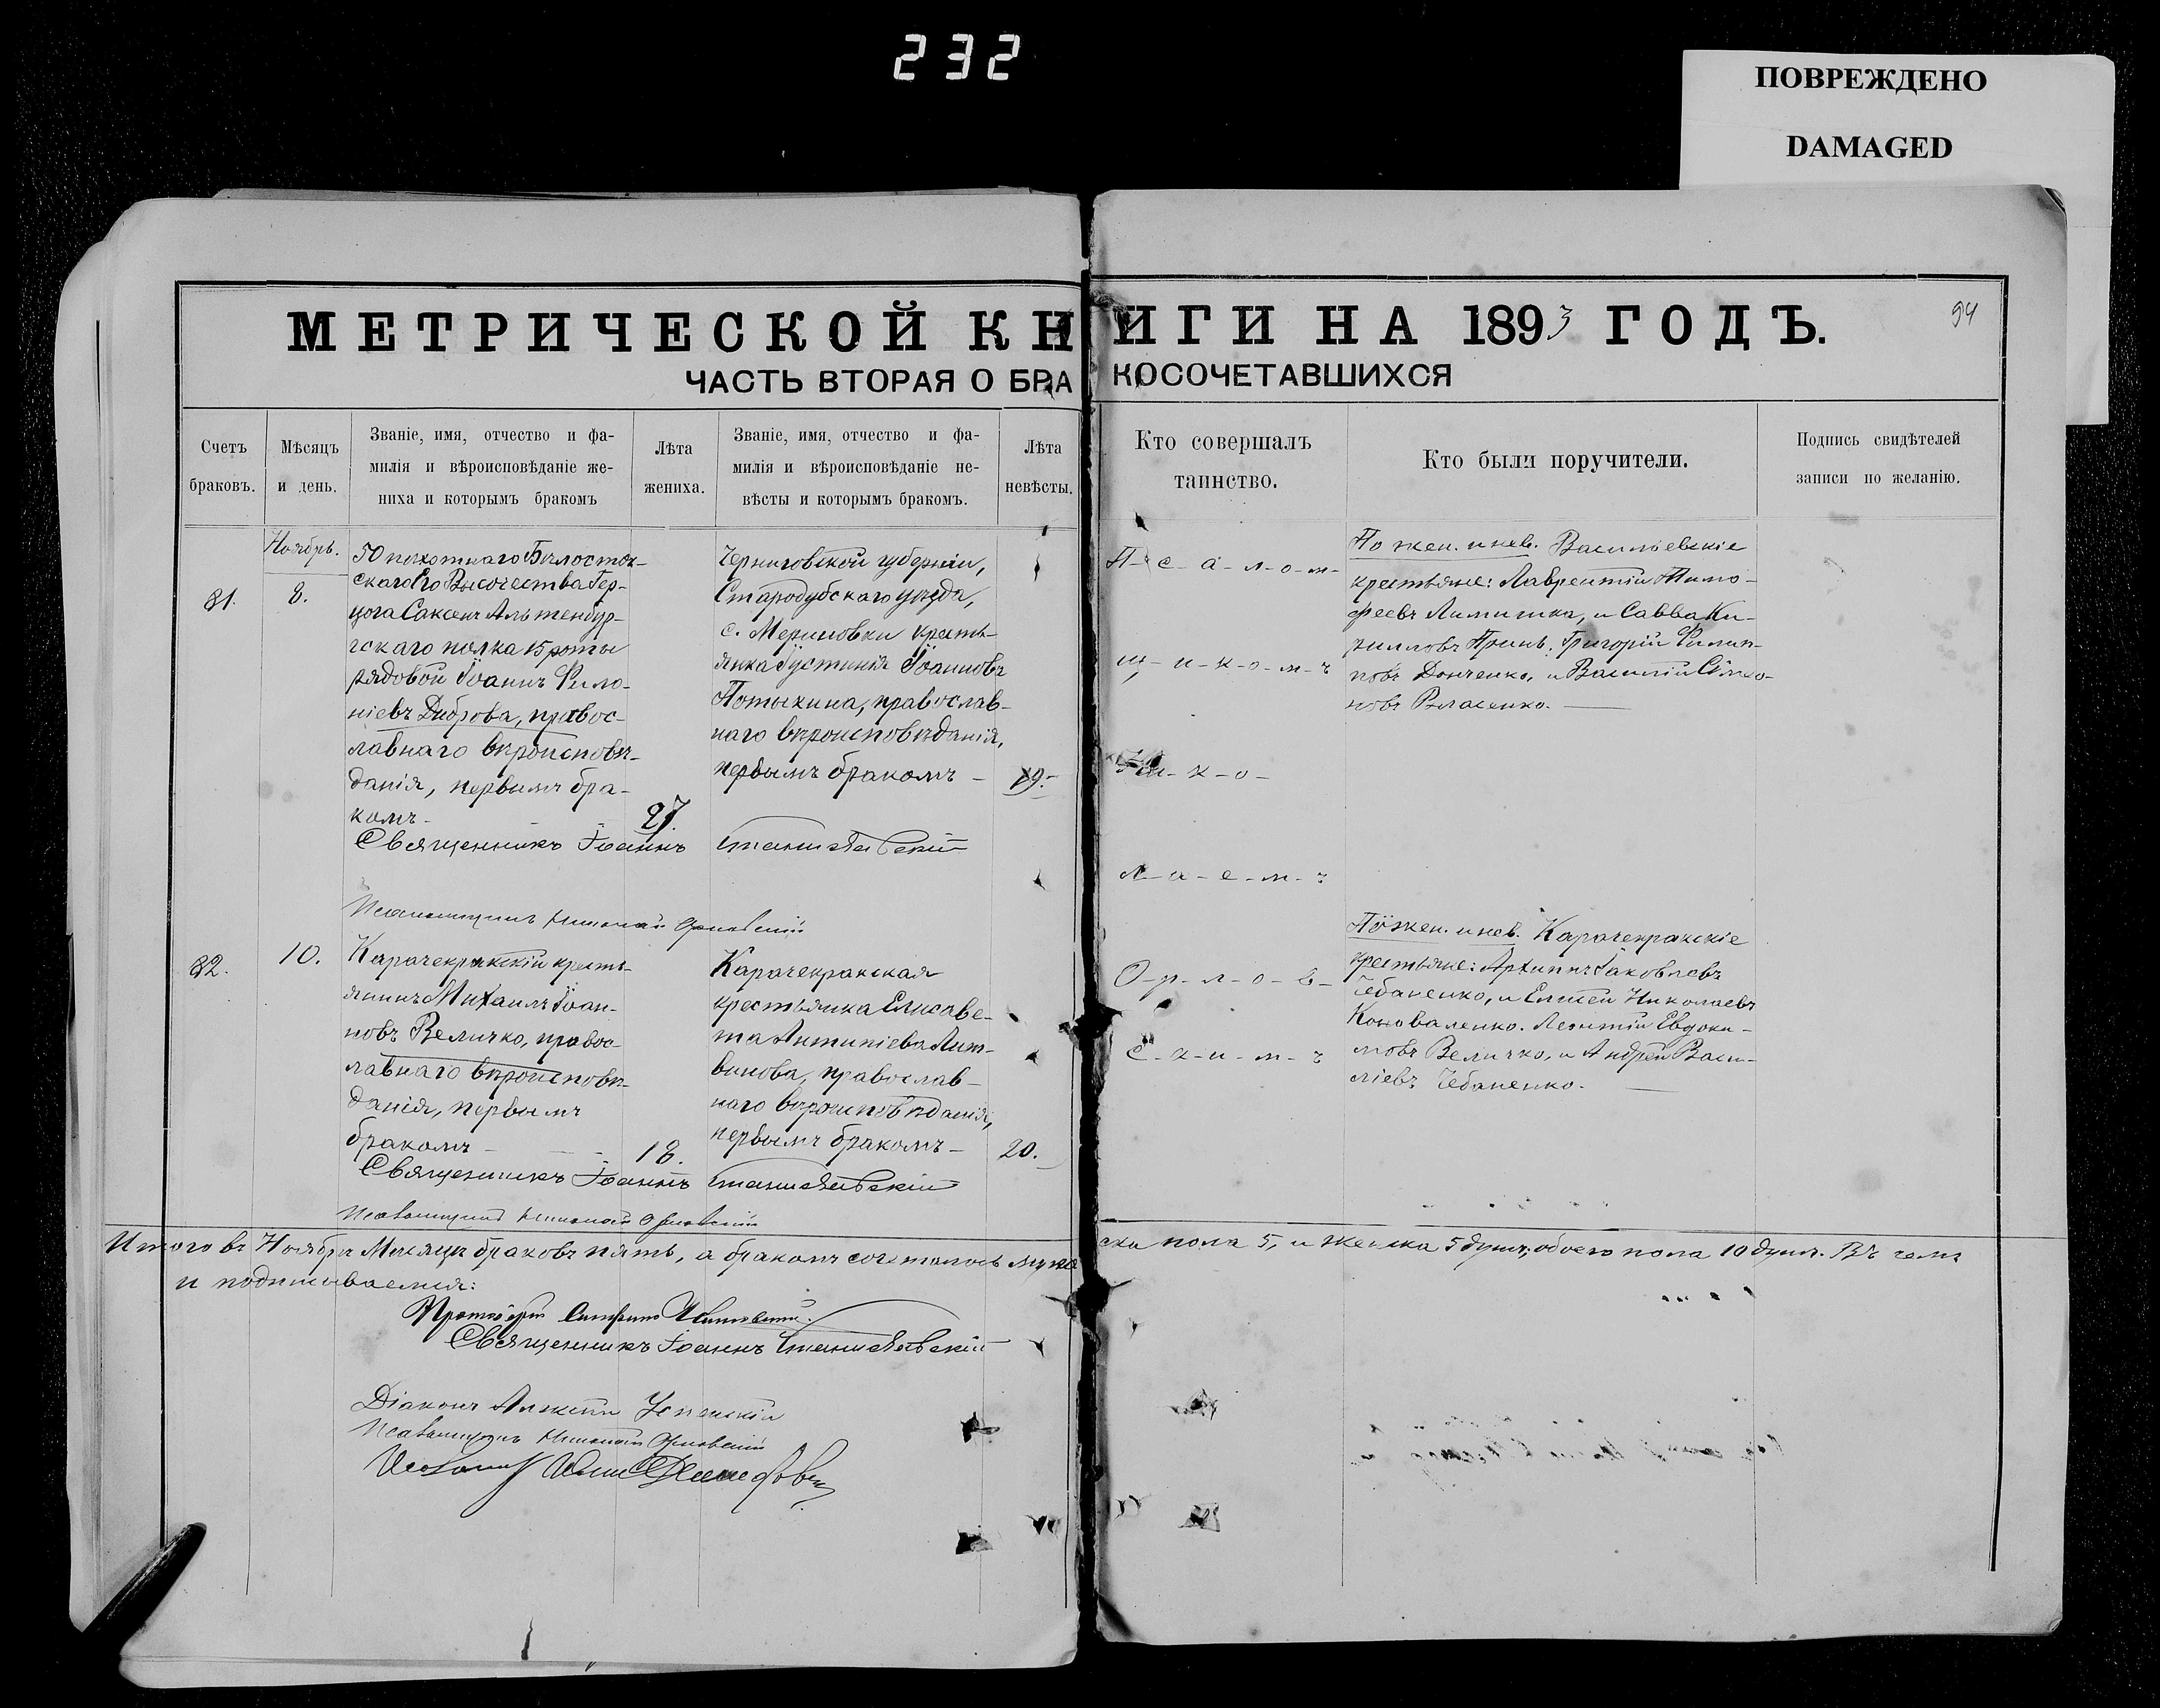 232
ПОВРЕЖДЕНО
DAMAGED
МЕТРИЧЕСКОЙ КНИГИ НА 1893 ГОДЪ.
94
ЧАСТЬ ВТОРАЯ О БРАКОСОЧЕТАВШИХСЯ
Счетъ браковъ.
Мѣсяцъ и день.
Званіе, имя, отчество и фа-
милія и вѣроисповѣданіе же-
ниха и которымъ бракомъ
Лѣта жениха.
Званіе, имя, отчество и фа-
милія и вѣроисповѣданіе не-
вѣсты и которымъ бракомъ.
Лѣта невѣсты.
Кто совершалъ
таинство.
Кто были поручители.
Подпись свидѣтелей
записи по желанію.
Ноябрь.
81.
8.
50 пѣхотнаго Бѣлосток-
скаго Его Высочества Гер-
цога Саксенъ Альтенбур-
гскаго полка 15 роты
рядовой Іоаннъ Фило-
ніевъ Диброва, правос-
лавнаго вѣроисповѣ-
данія, первымъ бра-
комъ-
27.
Черниговской губерніи,
Стародубскаго уѣзда,
с. Мериновки кресть-
янка Іустинія Іоаннова
Потыхина, православ-
наго вѣроисповѣданія,
первымъ бракомъ -
19.-
П-с-а-л-о-м-
щ-и-к-о-м-ъ
Н-и-к-о-
л-а-е-м-ъ
По жен. и нев. Васильевскіе
крестьяне: Лаврентій Тимо-
феевъ, и Савва Ки-
рилловъ Гринь. Григорій Филип-
повъ Донченко, и Василій Симео-
новъ Власенко.
Священникъ Іоаннъ Станиславскій
Псаломщикъ Николай Орловскій
82.
10.
Карачекракскій кресть-
янинъ Михаилъ Іоан-
новъ Величко, правос-
лавнаго вѣроисповѣ-
данія, первымъ
бракомъ -
18.
Карачекракская
крестьянка Елисаве-
та Антипіева Лит-
винова, православ-
наго вѣроисповѣданія,
первымъ бракомъ -
20.
О-р-л-о-в-
с-к-и-м-ъ
По жен. и нев. Карачекракскіе
крестьяне: Архиппъ Іаковлевъ
Чебаненко, и Елисей Николаевъ
Коноваленко. Леонтій Евдоки-
мовъ Величко, и Андрей Васи-
ліевъ Чебаненко.
Священникъ Іоаннъ Станиславскій
Псаломщикъ Николай Орловскій
Итого въ Ноябрѣ Мѣсяцѣ браковъ пять, а бракомъ сочеталось мужеска пола 5, и женска 5 душъ, обоего пола 10 душъ. Въ чемъ
и подписываемся:
Протоіерей
Священникъ Іоаннъ Станиславскій
Діаконъ Алексѣй Успенскій
Псаломщикъ Николай Орловскій